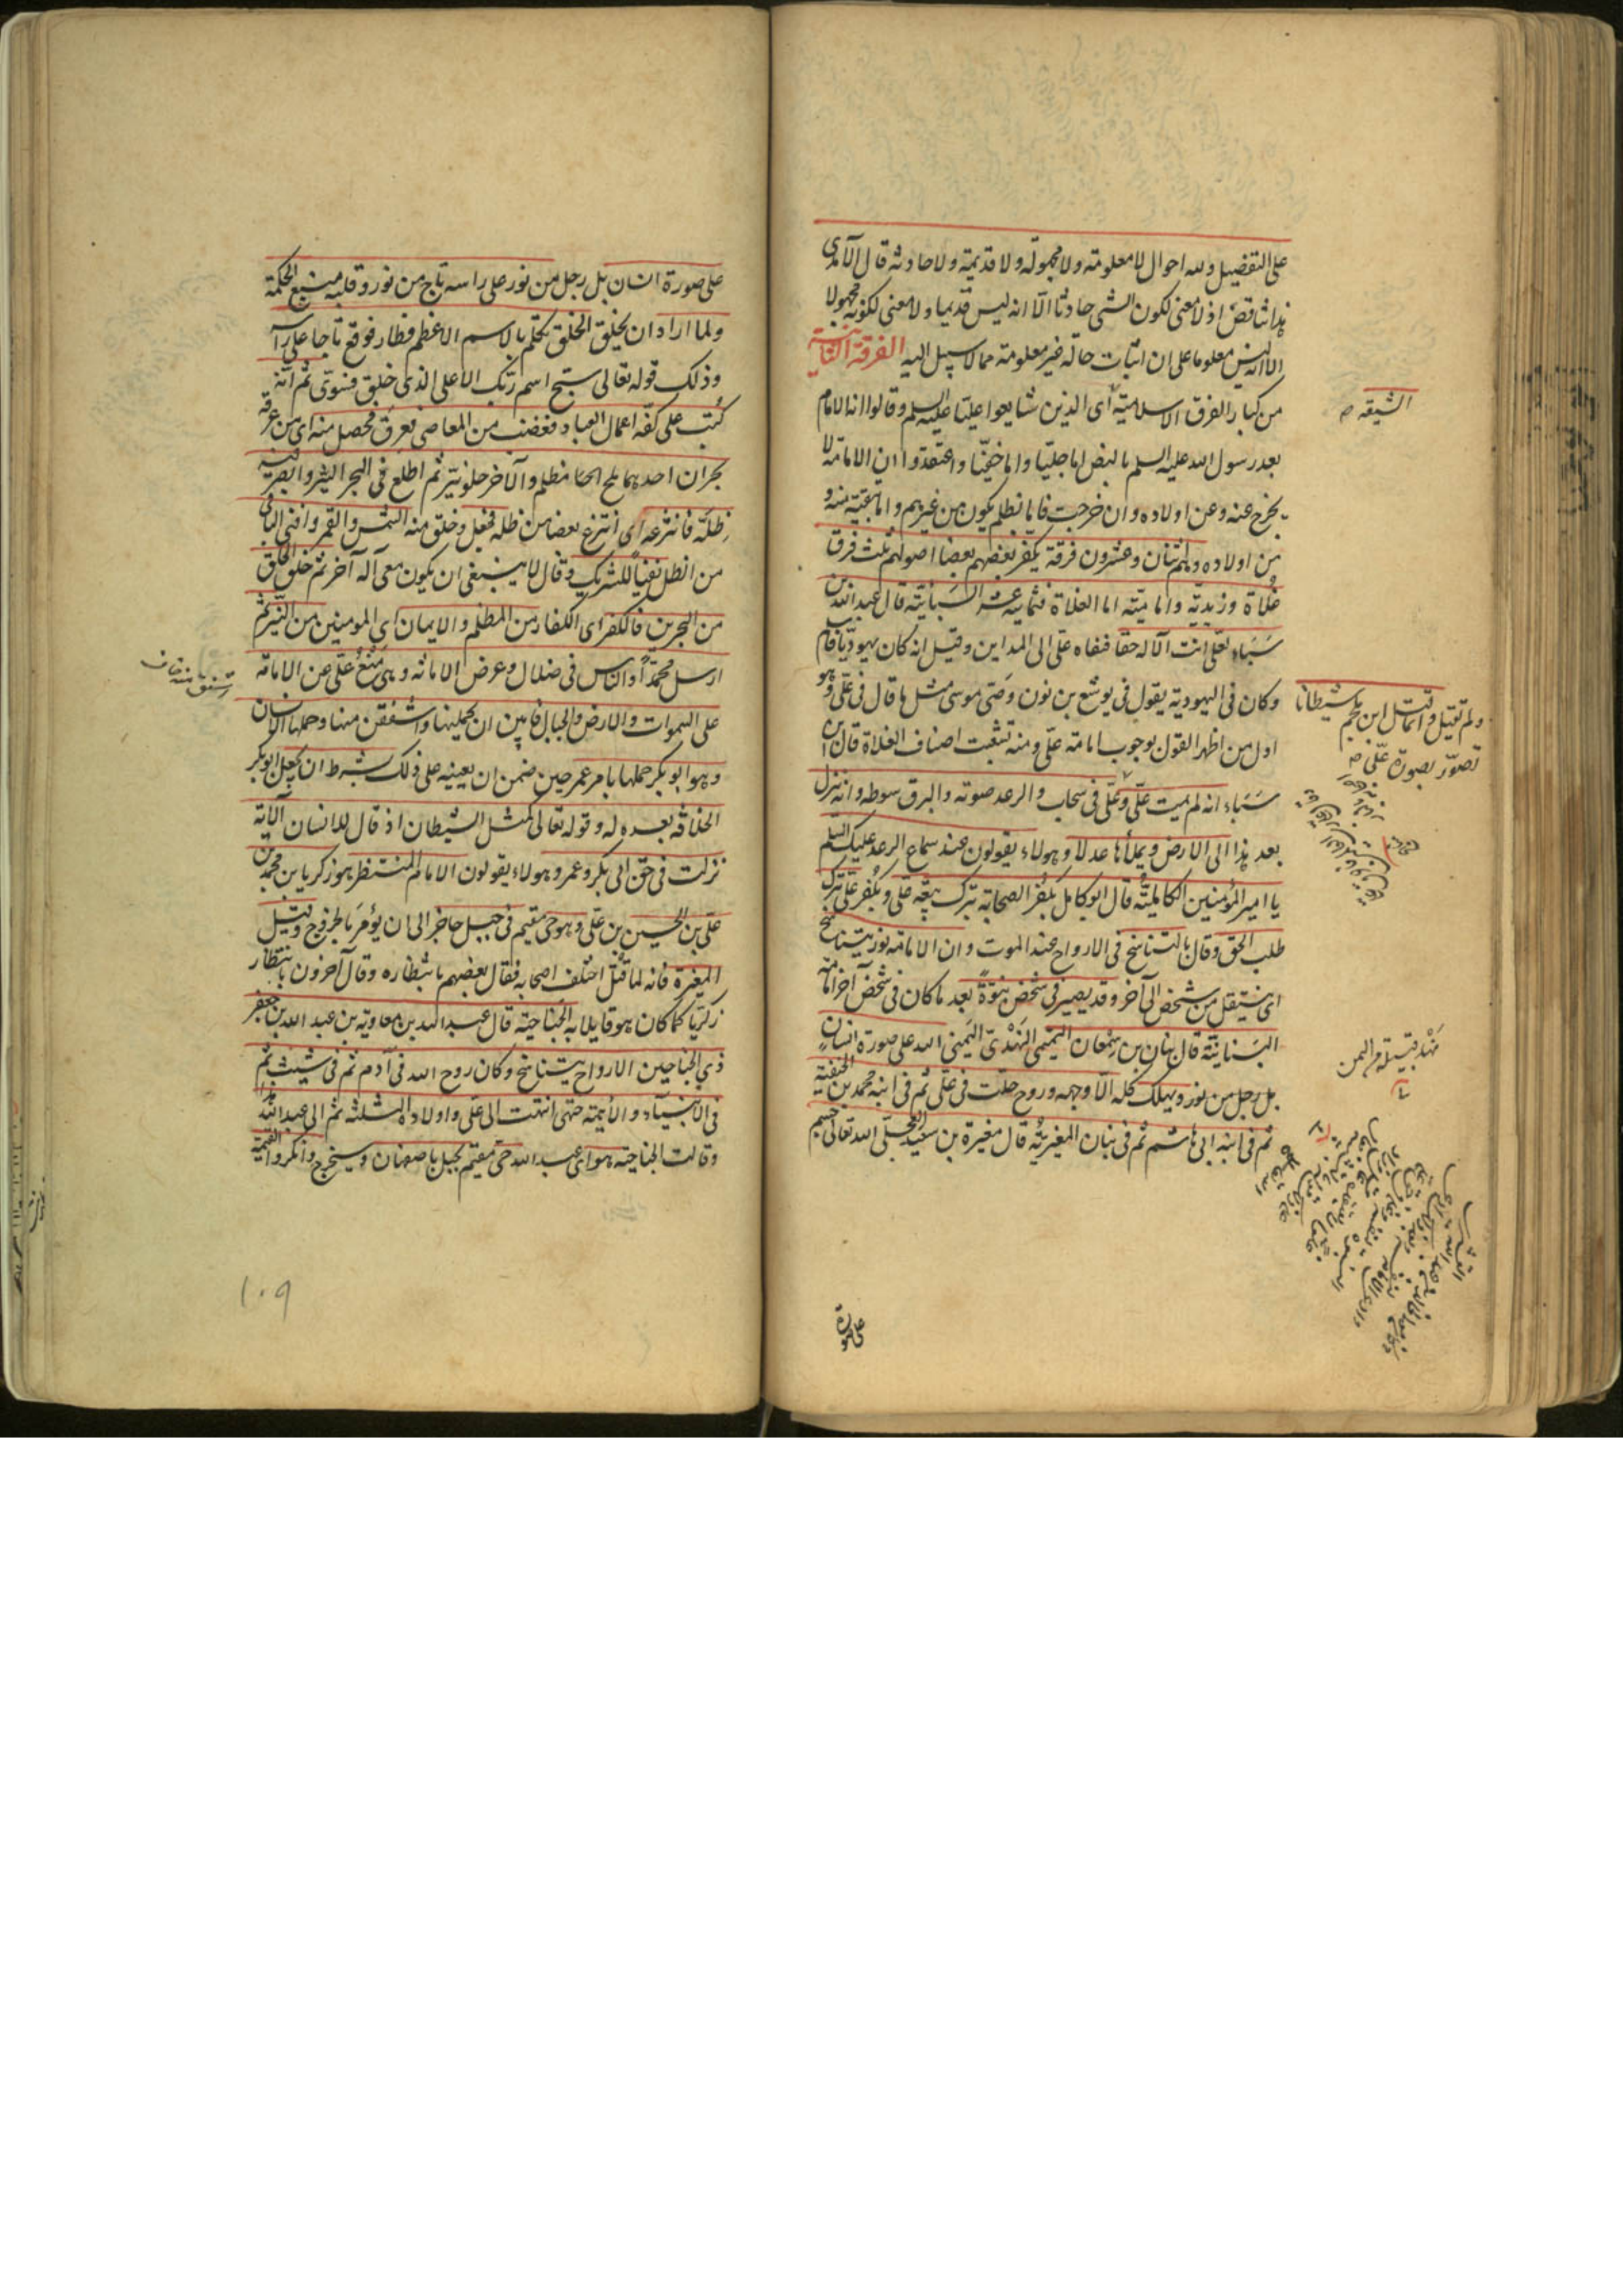 على التفضيل ولله احوال لا معلومة ولا مجهولة ولا قديمة ولا حادثة قال الآمدي
هذا تناقض اذ لا معنى لكون الشى حادثا الا انه ليس قديما ولا معنى لكونه مجهولا
الا انه ليس معلوما على ان اثبات حالة غير معلومة مما لا سبيل اليه الفرقة الثانية
من كبار الفرق الاسلامية اى الذين شايعوا عليا عليه السلم وقالوا انه الامام
الشيعة صح
بعد رسول الله عليه السلم بالنص اما جليا واما خفيا واعتقدوا ان الامامة لا
يخرج عنه وعن اولاده وان خرجت فاما بظلم يكون من غيرهم واما بتقية منه و
من اولاده وهم ثنان وعشرون فرقة يكفر بعضهم بعضا اصولهم ثلث فرق
غلاة وزيدية وامامية اما الغلاة فثمانية عشر السبائية قال عبد الله بن
سباء لعلى انت الآله حقا فنفاه على الى المداين وقيل انه كان يهوديا فاسلم
وكان فى اليهودية يقول فى يوشع بن نون وصى موسى مثل ما قال فى على وهو
اول من اظهر القول بوجوب امامة على ومنه تشعبت اصناف الغلاة قال ابن
سباء انه لم يمت على وعلى فى سحاب والرعد صوته والبرق سوطه وانه ينزل
ولم تقتل وانما قتل ابن ملجم شيطانا
تصور بصورة على صح
بعد هذا الى الارض ويملأها عدلا وهولاء يقولون عند سماع الرعد عليك السلم
يا امير المؤمنين الكاملية قال ابو كامل بكفر الصحابة بترك بيعة على وبكفر على بترك
طلب الحق وقال بالتناسخ فى الارواح عند الموت وان الامامة نور يتناسخ
اى ينتقل من شخص الى آخر وقد يصير فى شخص نبوة بعد ما كان فى شخص آخر امامة
البنانية قال بنان بن سمعان التميمى النهدى اليمنى الله على صورة انسان
نهد قبيلة من اليمن
بل رجل من نور ويهلك كله الا وجهه وروح حلت فى على ثم فى ابنه محمد بن الحنفية
ثم فى ابنه ابى هاشم ثم فى بنان المغيرية قال مغيرة بن سعيد العجلى الله تعالى جسم
على صورة
على صورة انسان بل رجل من نور على راسه تاج من نور وقلبه منبع الحكمة
ولما اراد ان يخلق الخلق تكلم بالاسم الاعظم فطار فوقع تاجا على راسه
وذلك قوله تعالى سبح اسم ربك الاعلى الذى خلق فسوى ثم انه
كتب على كفه اعمال العباد فغضب من المعاصى فعرق فحصل منه اى من عرقه
بحران احدهما ملح اجاج مظلم والآخر حلو نير ثم اطلع فى البحر النير وابصر فيه
ظله فانتزعه اى انتزع بعضا من ظله فجعل وخلق منه الشمس والقمر وافنى الباقى
من الظل نفيا للشريك وقال لا ينبغى ان يكون معى آله آخر ثم خلق الخلق
من البحرين فالكفر اى الكفار من المظلم والايمان اى المومنين من النير ثم
ارسل محمدا والناس فى ضلال وعرض الامانة وهى منع على عن الامامة
على السموات والارض والجبال فابين ان يحملنها واشفقن منها وحملها الانسان
وهو ابو بكر حملها بامر عمر حين ضمن ان يعينه على ذلك بشرط ان يجعل ابو بكر
الخلافة بعده له وقوله تعالى كمثل الشيطان اذ قال للانسان الآية
نزلت فى حق ابى بكر وعمر وهولاء يقولون الامام المنتظر هو زكريا بن محمد بن
على بن الحسين بن على وهو حى مقيم فى جبل حاجر الى ان يؤمر بالخروج وقيل
المغيرة فانه لما قتل اختلف اصحابه فقال بعضهم بانتظاره وقال آخرون بانتظار
زكريا كما كان هو قايلا به الجناحية قال عبد الله بن معاوية بن عبد الله بن جعفر
ذى الجناحين الارواح يتناسخ وكان روح الله فى آدم ثم فى شيث ثم
فى الانبياء والأيمة حتى انتهت الى على واولاده الثلثة ثم الى عبد الله هذا
وقالت الجناحية هو اى عبد الله حى مقيم بجبل باصفهان وسيخرج وانكروا القيمة
١٠٩